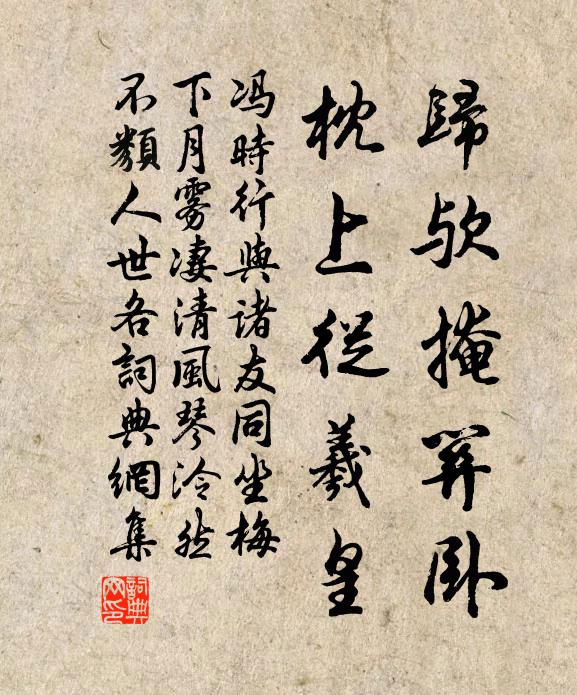 歸欤掩關卧
枕上從羲皇
冯時行與諸友同坐梅
下月雾凄清風琴泠然
不類人世各詞典網集
詞典
网印